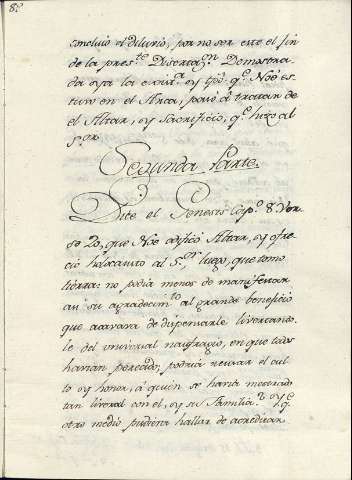 concluio el diluvio, por no ser este el fin
de la pres.te Disertaz.n Demostra-
da oya la exist.a oy tpõ. q.e Noé es-
tuvo en el Arca, pasó á tratar de
el Altar, oy Sacrificio, q.e hizo al
S.or
Segunda Parte.
Dice el Genesis Cap.o 8. Ver-
so 20, que Noe edificó Altar, oy ofre-
ció holocausto al S.or luego, que tomó
tierra: no podia menos de manifestar
asi su agradecim.to al grande beneficio
que acavava de dispensarle livertando-
le del universal naufragio, en que todos
havian perecido; podria revivar el cul-
to oy honor, á quien se havia mostrado
tan liveral con el, oy su Familia? oy q.e
otro medio pudiera hallar de acreditar